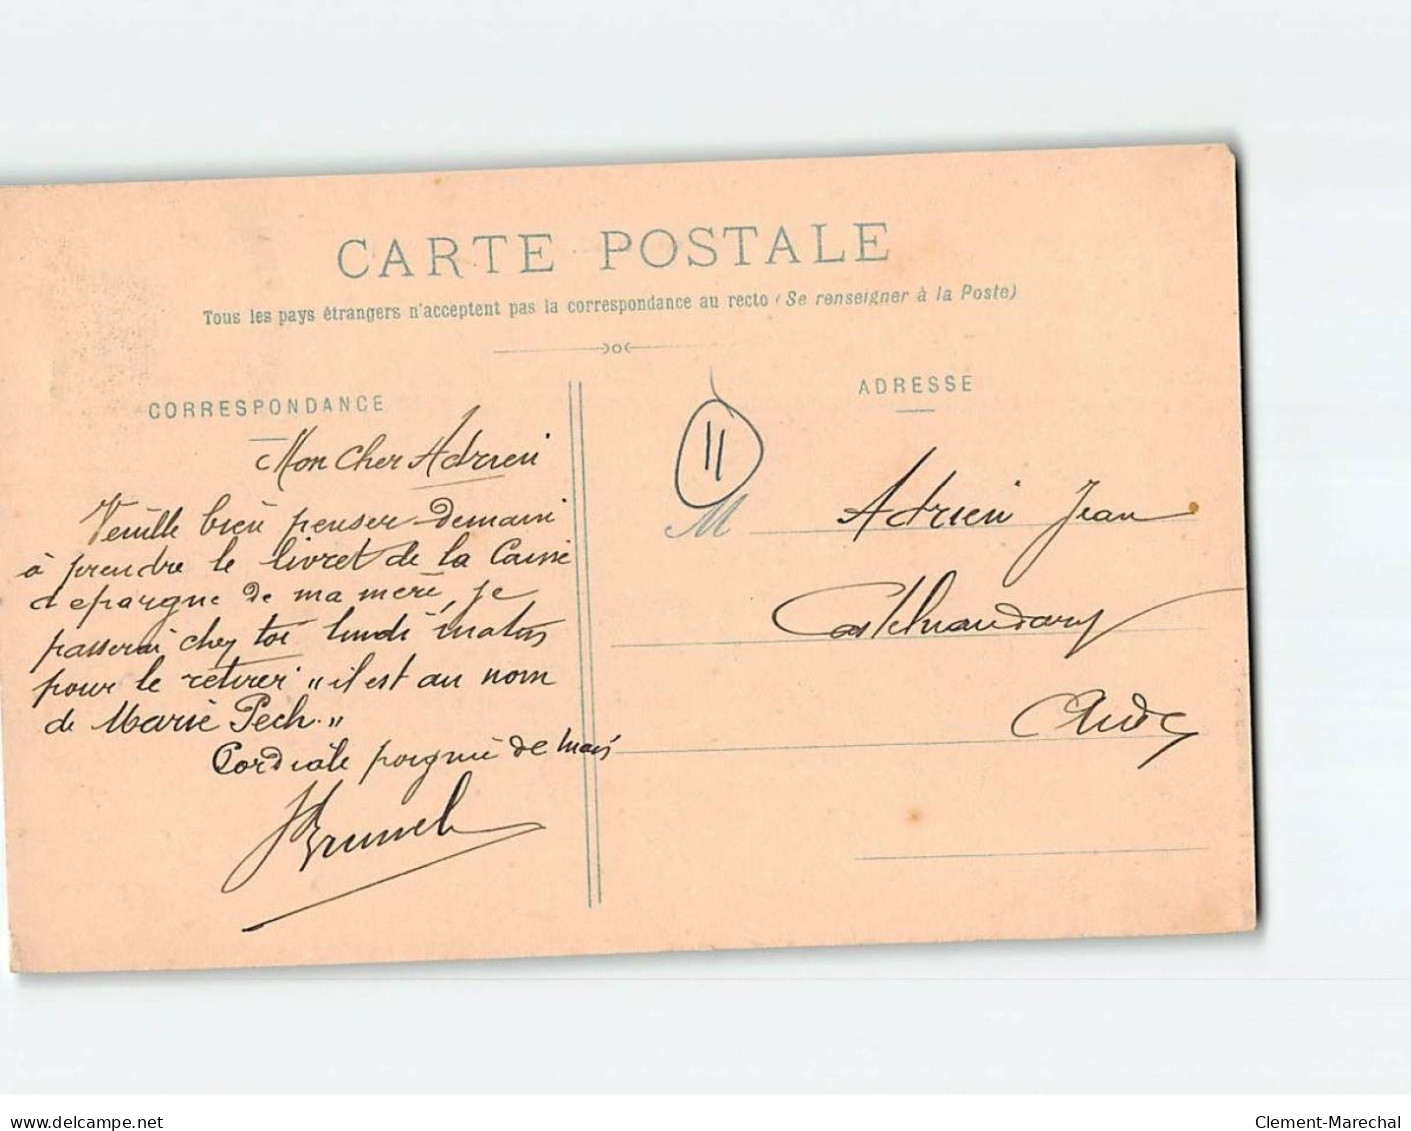 CARTE POSTALE
Tous les pays étrangers n'acceptent pas la correspondance au recto (Se renseigner à la Poste)
CORRESPONDANCE
Mon Cher Adrien
Veuille bien penser demain
à prendre le livret de la Caisse
d'epargne de ma mere, je
passerai chez toi lundi matin
pour le retirer „ il est au nom
de Marie Pech. „
Cordiale poignée de main
JBrunel
ADRESSE
11
M Adrien Jean
Castelnaudary
Aude
www.delcampe.net
Clement-Marechal